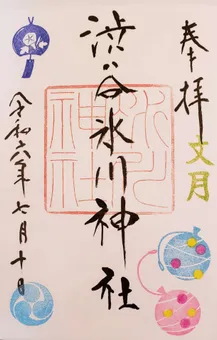 奉拝
文月
渋谷氷川神社
氷川神社
令和六年七月十日